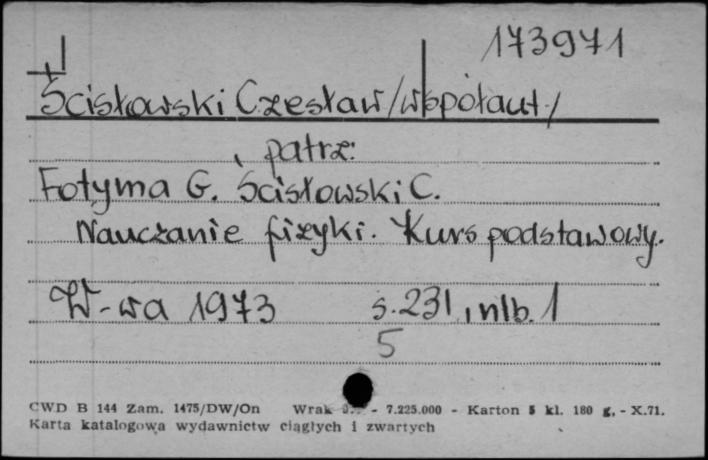 173971
Ścisłowski Czesław /współaut./
patrz:
Fotyma G. Ścisłowski C.
Nauczanie fizyki. Kurs podstawowy.
W-wa 1973 s. 231, nlb. 1
5
CWD B 144 Zam. 1475/DW/On Wrak - 7.225.000 - Karton 5 kl. 180 g. - X.71.
Karta katalogowa wydawnictw ciągłych i zwartych